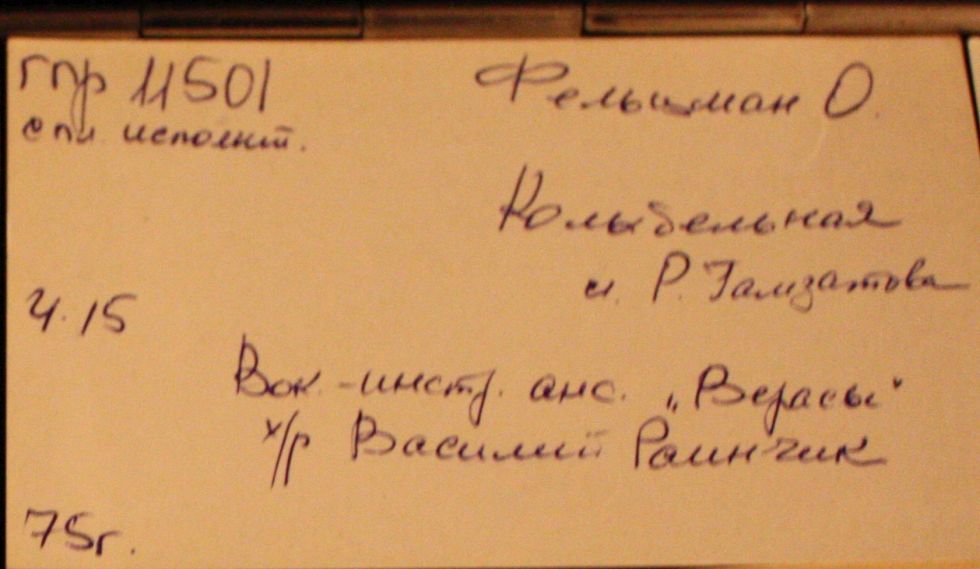 ГПР 11501
Фельцман О.
сп. исполнит.
Колыбельная
сл. Р. Гамзатова
4.15
Вок.-инстр. анс. „Верасы"
х/р Василий Раинчик
75г.